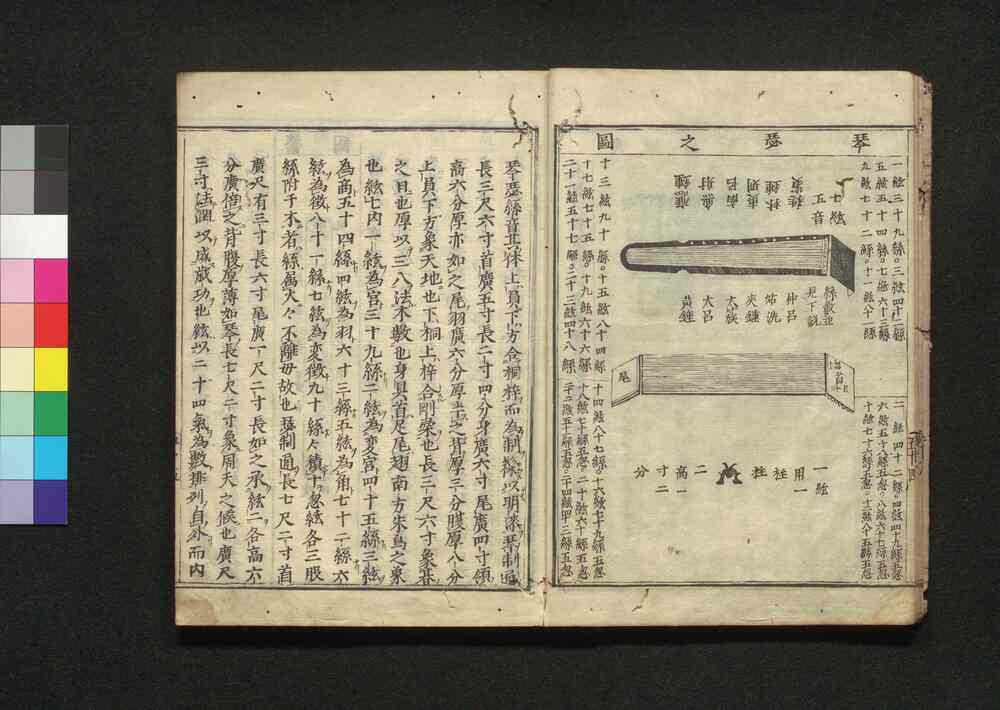 琴瑟之圖
一絃三十九綹○三絃四十二綹
五絃五十四綹○七絃六十三綹
九絃七十二綹○十一絃八十一綹
二絃四十二綹○四絃四十九綹五忽
六絃五十八綹五忽○八絃六十七綹五忽
十絃七十六綹五忽○十二絃八十五綹五忽
七絃
五音
蕤賓
林鍾
夷則
南呂
無射
應鍾
仲呂
姑洗
夾鍾
太簇
大呂
黄鍾
首
尾
一絃
用一
柱
柱
二
高一
寸二
分
十三絃九十綹○十五絃八十四綹
十七絃七十五綹○十九絃六十六綹
二十一絃五十七綹○二十三絃四十八綹
十四絃八十七綹○十六絃七十九綹五忽
十八絃七十綹五忽○二十絃六十綹五忽
琴瑟綹音共体上員下方合桐梓而為制擬以明深琴制通
長三尺六寸首廣五寸長二寸四分身廣六寸尾廣四寸領
高六分厚亦如之尾羽廣六分厚五之背厚三分腹厚八分
上員下方象天地也下桐上梓合剛柔也長三尺六寸象朞
之日也厚以三八法木數也身具首足尾翅南方朱鳥之象
也絃七内一絃為宮三十九綹二絃為変宮四十五綹三絃
為商五十四綹四絃為羽六十三綹五絃為角七十二綹六
絃為徵八十一綹七絃為変徵九十綹々積十忽絃各三股
綹附于木者綹属火々不離毋故也瑟制通長七尺二寸首
廣尺有三寸長六寸尾廣一尺二寸長如之承絃二各高六
分廣倍之背腹厚薄如琴長七尺二寸象周天之候也廣尺
三寸法閏以成歳功也絃以二十四氣為數排列自外而内